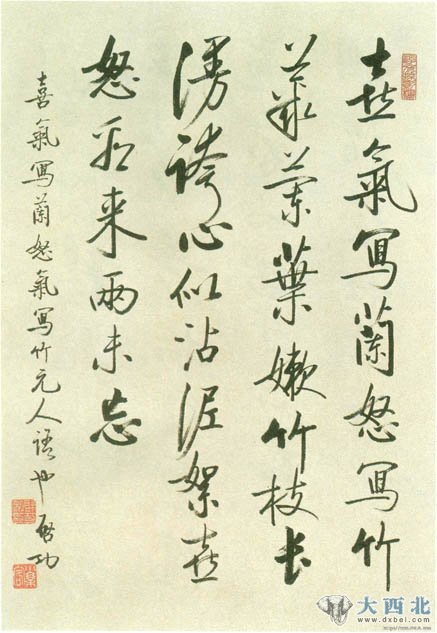 喜氣寫蘭怒寫竹
叢蘭葉嫩竹枝長
漫誇心似沾泥絮喜
怒看来兩未忘
喜氣寫蘭怒氣寫竹元人語也 啟功
大西北
www.dxbei.com